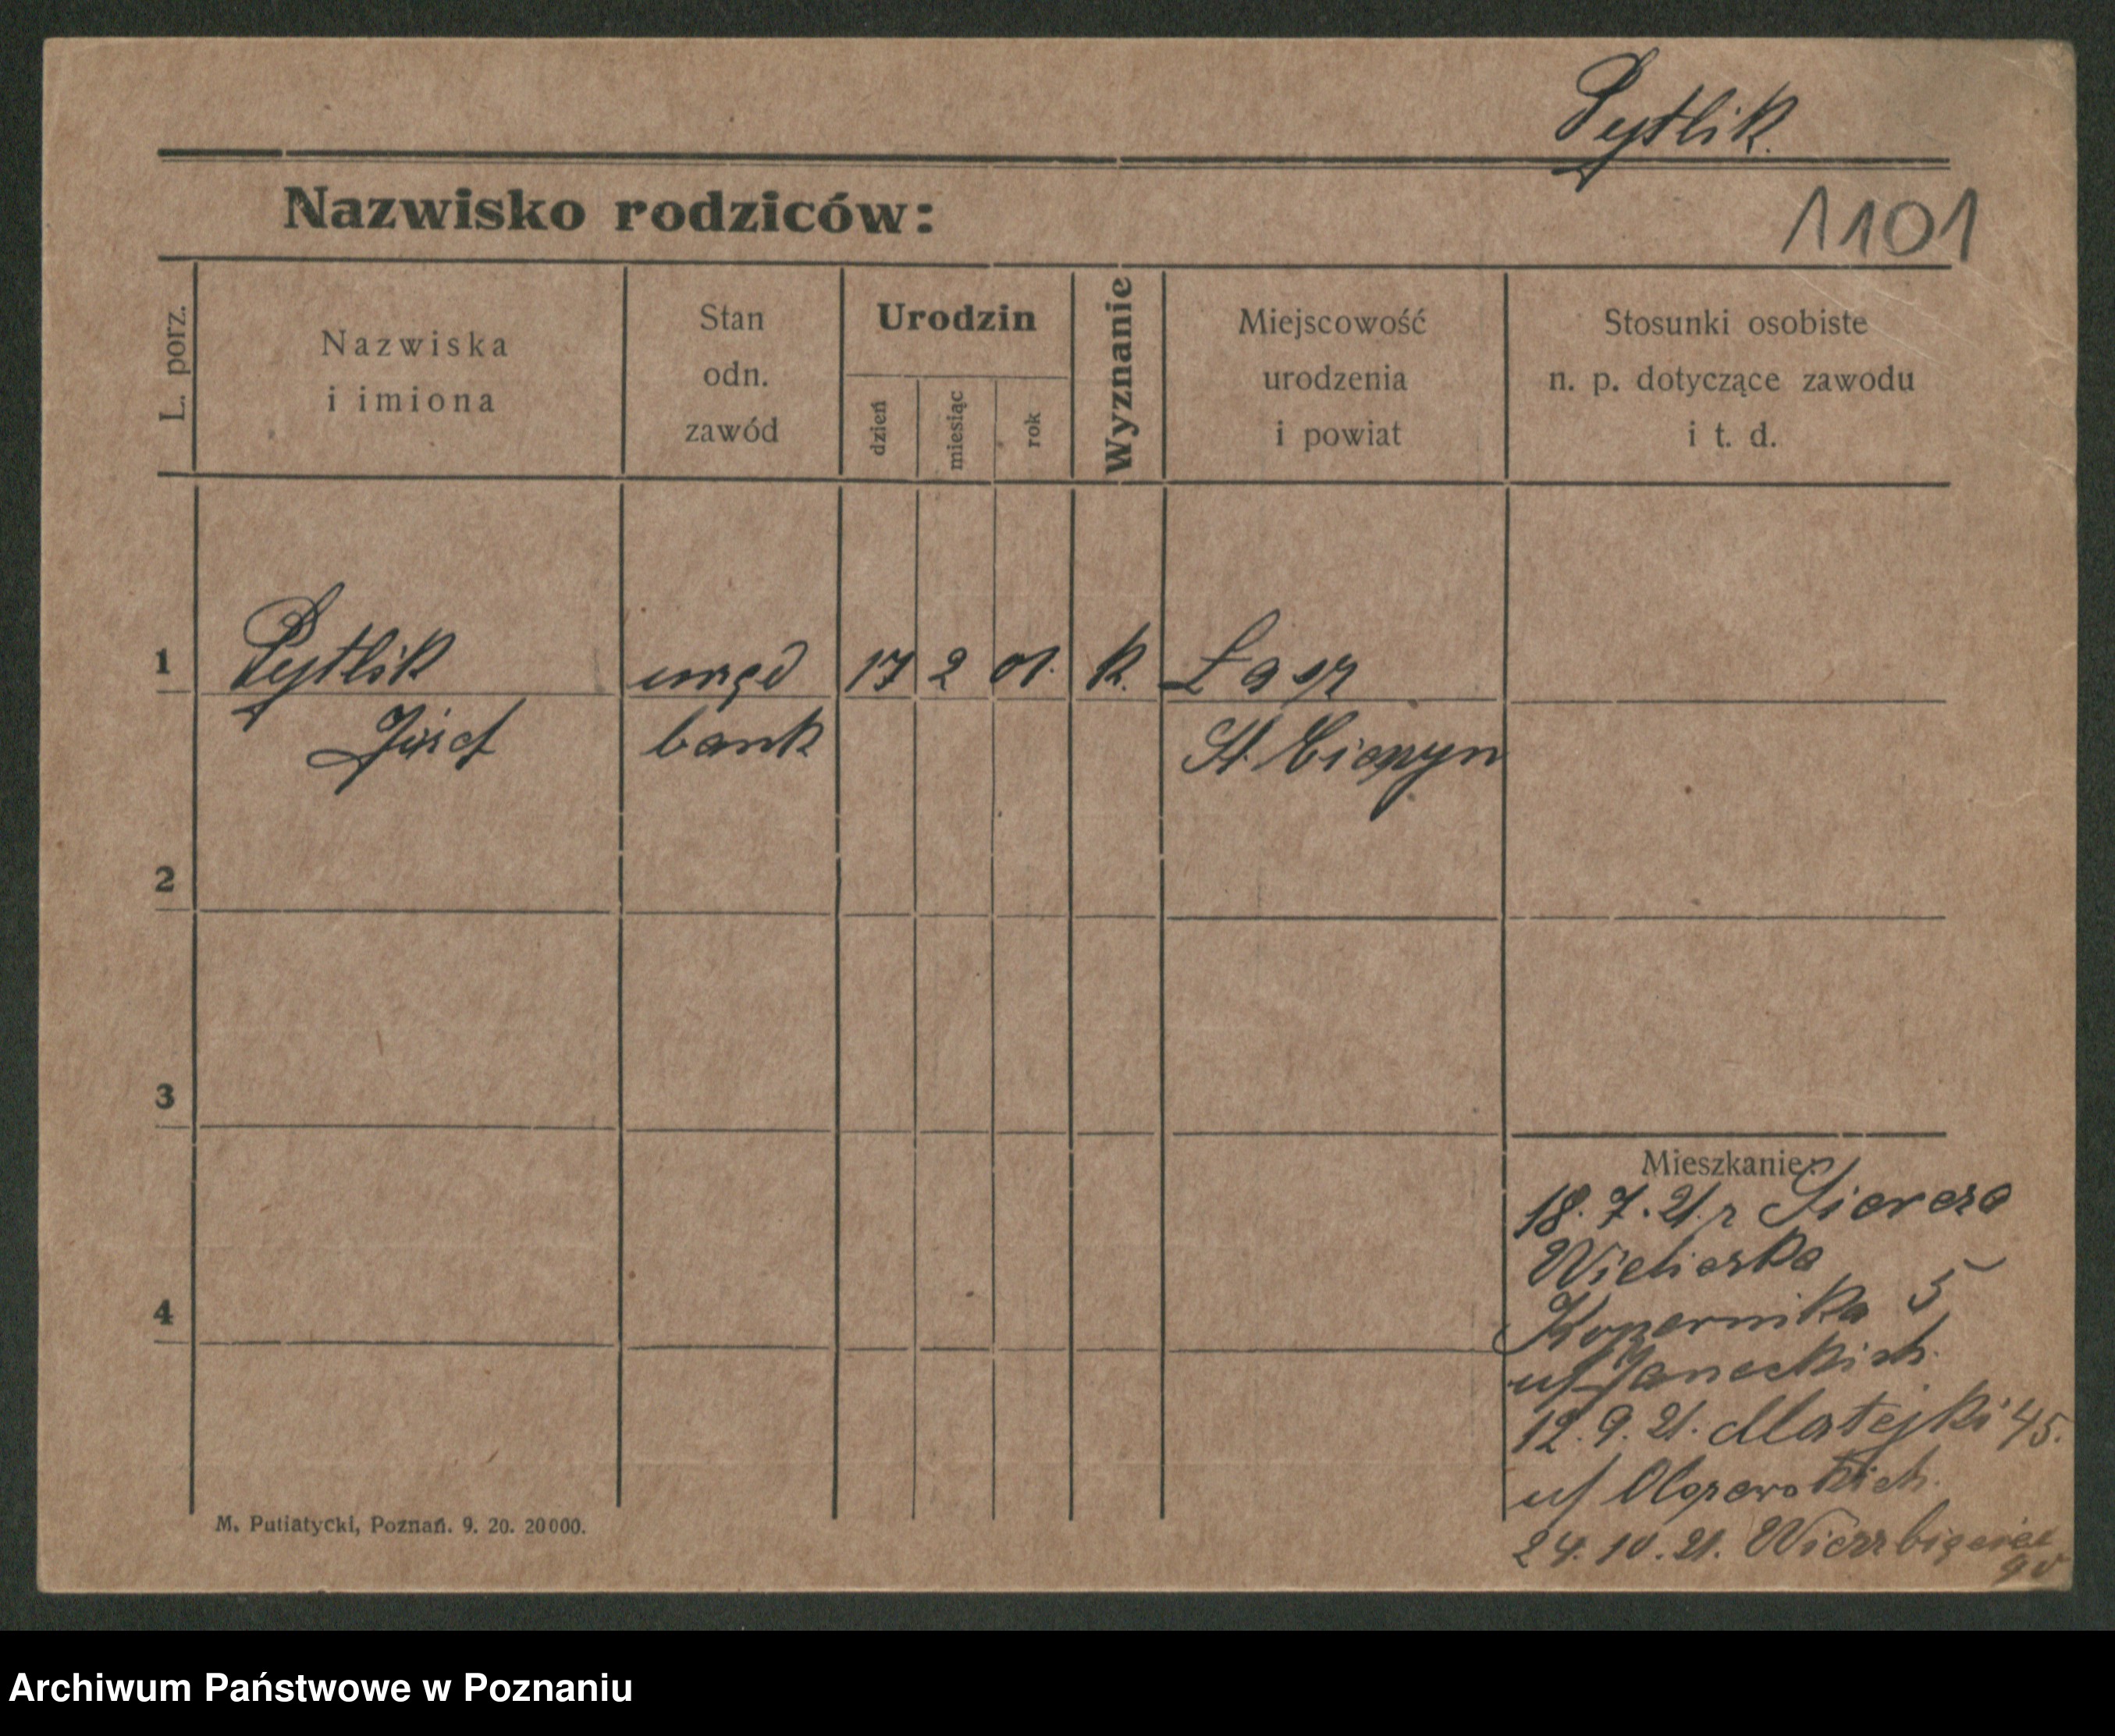 Pytlik
Nazwisko rodziców:
1101
L. porz.
Nazwiska
i imiona
Stan
odn.
zawód
Urodzin
dzień
miesiąc
rok
Wyznanie
Miejscowość
urodzenia
i powiat
Stosunki osobiste
n. p. dotyczące zawodu
i t. d.
1 Pytlik urzęd 17 2 01. k.
Józef bank
2
3
4
Mieszkanie:
18. 7. 21. z
Kopernika 5
12. 9. 21. Matejki 45.
24. 10. 21. Wierzbięcice
M. Putiatycki, Poznań. 9. 20. 20000.
Archiwum Państwowe w Poznaniu